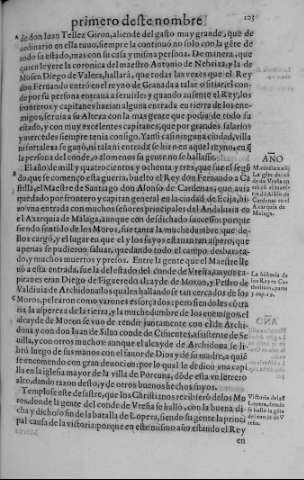 primero deste nombre
103
de don Iuan Tellez Giron, aliende del gasto muy grande, que de
ordinario en ella tuuo, siempre la continuó no solo con la gẽte de
todo su estado, mas con su casa y misma persona. De manera, que
quien leyere la coronica del maestro Antonio de Nebrixa, y la de
Mosen Diego de Valera, hallará, que todas las vezes que el Rey
don Fernando entró en el reyno de Granada a talar o sitiar, el con-
de por su persona entraua a seruirle: y quando ausente el Rey, los
fronteros y capitanes hazian alguna entrada en tierra de los ene-
migos, seruia a su Alteza con la mas gente que podia de todo su
estado, y con muy excelentes capitanes, que por grandes salarios
y mercedes siempre tenia consigo. Y assi casi ninguna ciudad, villa
ni fortaleza se ganó, ni talas ni entrada se hizo en aquel reyno, en q̃
la persona del conde, o alomenos su gente no se hallasse.
El año de mill y quatrocientos y ochenta y tres, que fue el segũ
do que se començo esta guerra, buelto el Rey don Fernando a Ca
stilla, el Maestre de Santiago don Alonso de Cardenas, que auia
quedado por frontero y capitan general en la ciudad de Ecija, hi-
zo vna entrada con muchos señores principales del Andaluzia en
el Axarquia de Málaga, aunque con desdichado successo: porque
siendo sentido de los Moros, fue tanta la muchedumbre que de-
llos cargó, y el lugar en que el y los suyos estauan tan aspero, que
apenas se pudieron saluar, quedando todo el campo desbarata-
do, y muchos muertos y presos. Entre la gente que el Maestre lle
uó a esta entrada, fue la del estado del conde de Vreña, cuyos ca-
pitanes eran Diego de Figueredo alcayde de Moron, y Pedro de
Valdiuia de Archidona: los quales hallandose tan cercados de los
Moros, pelearon como varones esforçados: pero siendoles cõtra
ria la aspereza de la tierra, y la muchedumbre de los enemigos, el
alcayde de Moron se vuo de rendir juntamente con el de Archi-
dona, y con don Iuan de Silua conde de Cifuentes, assistente de Se
uilla, y con otros muchos: aunque el alcayde de Archidona se li-
bró luego de sus manos con el fauor de Dios y de su madre, a quiẽ
se encomendó con gran deuocion: por lo qual le dedicó vna capi
lla en la iglesia mayor de la villa de Porcuna, dõde esta vn letrero
alto, dando razon desto, y de otros buenos hechos suyos.
Templose este desastre, que los Christianos recibierõ de los Mo
ros, donde la gente del conde de Vreña se halló, con la buena di-
cha y dichoso fin de la batalla de Lopera, siendo su gente la princi
pal causa de la victoria: porque en este mismo año estando el Rey
en
AÑO
Málaga.
La historia de
los Reyes Ca
tholicos, parte